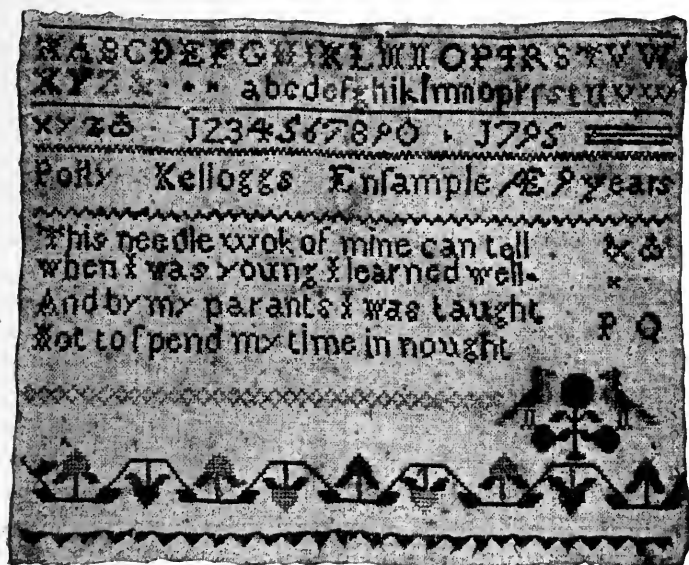 ABCDEFGHIKLMNOPQRSTVW
XYZ& abcdefghiklmnoprſstuvwx
xyz& 1234567890 1795
Polly Kelloggs Enſample Æ 9 years
This needle work of mine can tell
when I was young I learned well
And by my parants I was taught
Not to ſpend my time in nought
P Q